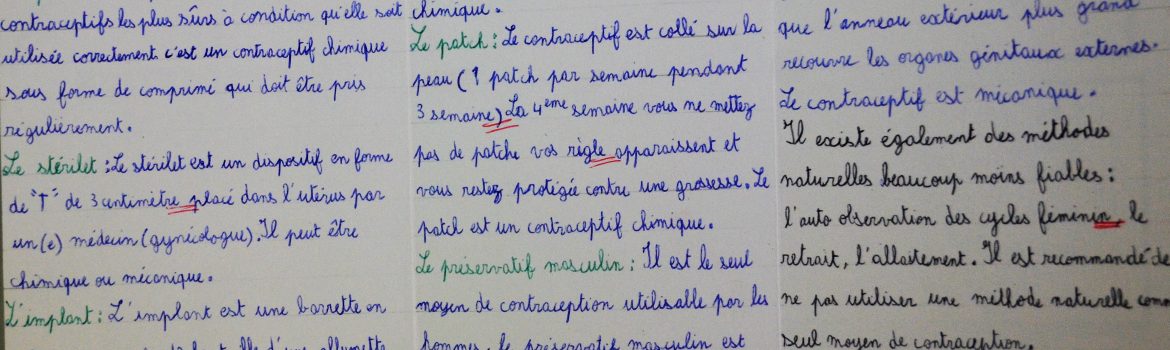 contraceptifs les plus sûrs à condition qu'elle soit
utilisée correctement c'est un contraceptif chimique
sous forme de comprimé qui doit être pris
régulièrement.
Le stérilet : Le stérilet est un dispositif en forme
de "T" de 3 centimètre placé dans l'utérus par
un(e) médecin (gynécologue). Il peut être
chimique ou mécanique.
L'implant : L'implant est une barrette en
d'une allumette
chimique.
Le patch : Le contraceptif est collé sur la
peau (1 patch par semaine pendant
3 semaine) La 4ème semaine vous ne mettez
pas de patche vos règle apparaissent et
vous restez protégée contre une grossesse. Le
patch est un contraceptif chimique.
Le préservatif masculin : Il est le seul
moyen de contraception utilisable par les
hommes, le préservatif masculin est
que l'anneau extérieur plus grand
recouvre les organes génitaux externes.
Le contraceptif est mécanique.
Il existe également des méthodes
naturelles beaucoup moins fiables :
l'auto observation des cycles féminin, le
retrait, l'allaitement. Il est recommandé de
ne pas utiliser une méthode naturelle comm
seul moyen de contraception.